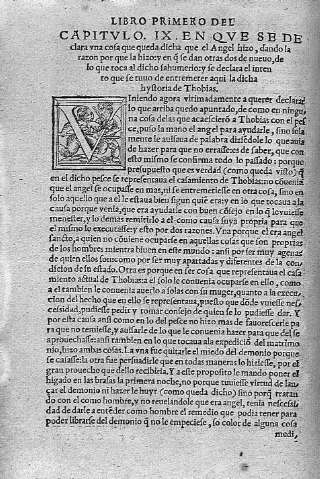 LIBRO PRIMERO DEL
CAPITVLO. IX. EN QVE SE DE
clara vna cosa que queda dicha que el Angel hizo, dando la
razon por que la hizo: y en q̃ se dan otras dos de nueuo, de
lo que toca al dicho sahumerio: y se declara el inten
to que se tuuo de entremeter aqui la dicha
hystoria de Thobias.
VIniendo agora vltimadamente a querer declarar
lo que arriba quedo apuntado, de como en ningu
na cosa de las que acaescierõ a Thobias con el pes
ce, puso la mano el angel para ayudarle, sino sola
mente le auisaua de palabra diziẽdole lo que auia
de hazer para que no errasse: es de saber, que con
esto mismo se confirma todo lo passado: porque
presupuesto que es verdad (como queda visto) q̃
en el dicho pesce se representaua el casamiento de Thobias: no cõuenia
que el angel se ocupasse en mas, ni se entremetiesse en otra cosa, sino en
solo aquello que a el le estaua bien segun quiẽ era: y en lo que tocaua a la
causa porque venia, que era ayudarle con buen cõsejo en lo q̃ lo vuiesse
menester, y lo demas remitirlo a el: como causa suya propria para que
el mismo lo executasse: y esto por dos razones. Vna porque el era angel
sancto, a quien no cõuiene ocuparse en aquellas cosas que son proprias
de los hombres mientra biuen en este mundo: ansi por ser muy agenas
de quien ellos son: como por ser muy apartadas y diferentes de la con
dicion de su estado. Otra es porque en ser cosa que representaua el casa
miento actual de Thobias: a el solo le conuenia ocuparse en ello, como
a el tambien le conuenia aperto a solas con su muger, quanto a la execu
cion del hecho que en ello se representaua, puesto que dõde vuiesse nes
cessidad, pudiesse pedir y tomar consejo de quien se lo pudiesse dar. Y
por esta causa ansi como en lo del pesce no hizo mas de fauorescerle pa
ra que no remiesse, y auisarle de lo que le conuenia hazer para que del se
aprouechasse: ansi tambien en lo que tocaua ala expediciõ del matrimo
nio, hizo ambas cosas. La vna fue quitarle el miedo del demonio porque
se casasse: la otra fue persuadirle que en todas maneras lo hiziesse, por el
gran prouecho que dello recibiria. Y a este proposito le mando poner el
higado en las brasas la primera noche, no porque tuuiesse virtud de lan
çar el demonio ni hazer le huyr (como queda dicho) sino porq̃ tratan
do con el como hombre, y no reuelandole que era angel, tenia nescessi
dad de darle a entẽder como hombre el remedio que podia tener para
poder librarse del demonio q̃ no le empeciesse, so color de alguna cosa
medi,